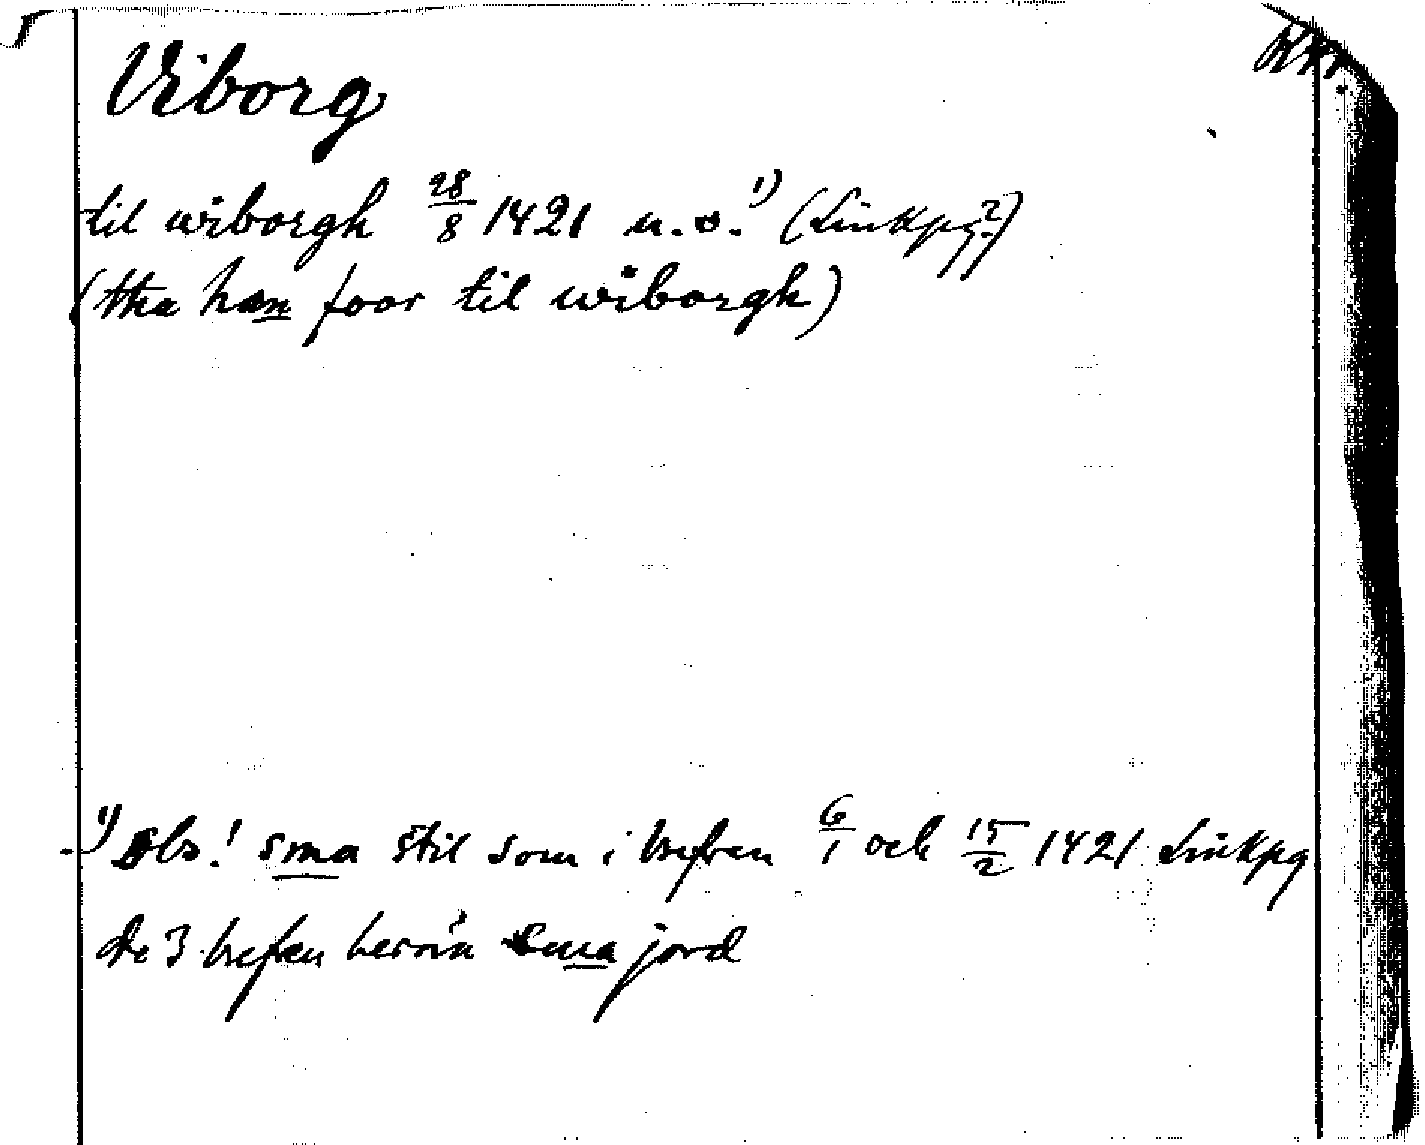 Viborg
til wiborgh 28/8 1421 u.o. 1) (Linkpg?)
(tha han foor til wiborgh)
1) Obs! sma stil som i brefven 6/1 och 15/2 1421 Linkpg
de 3 brefven beröra sma jord